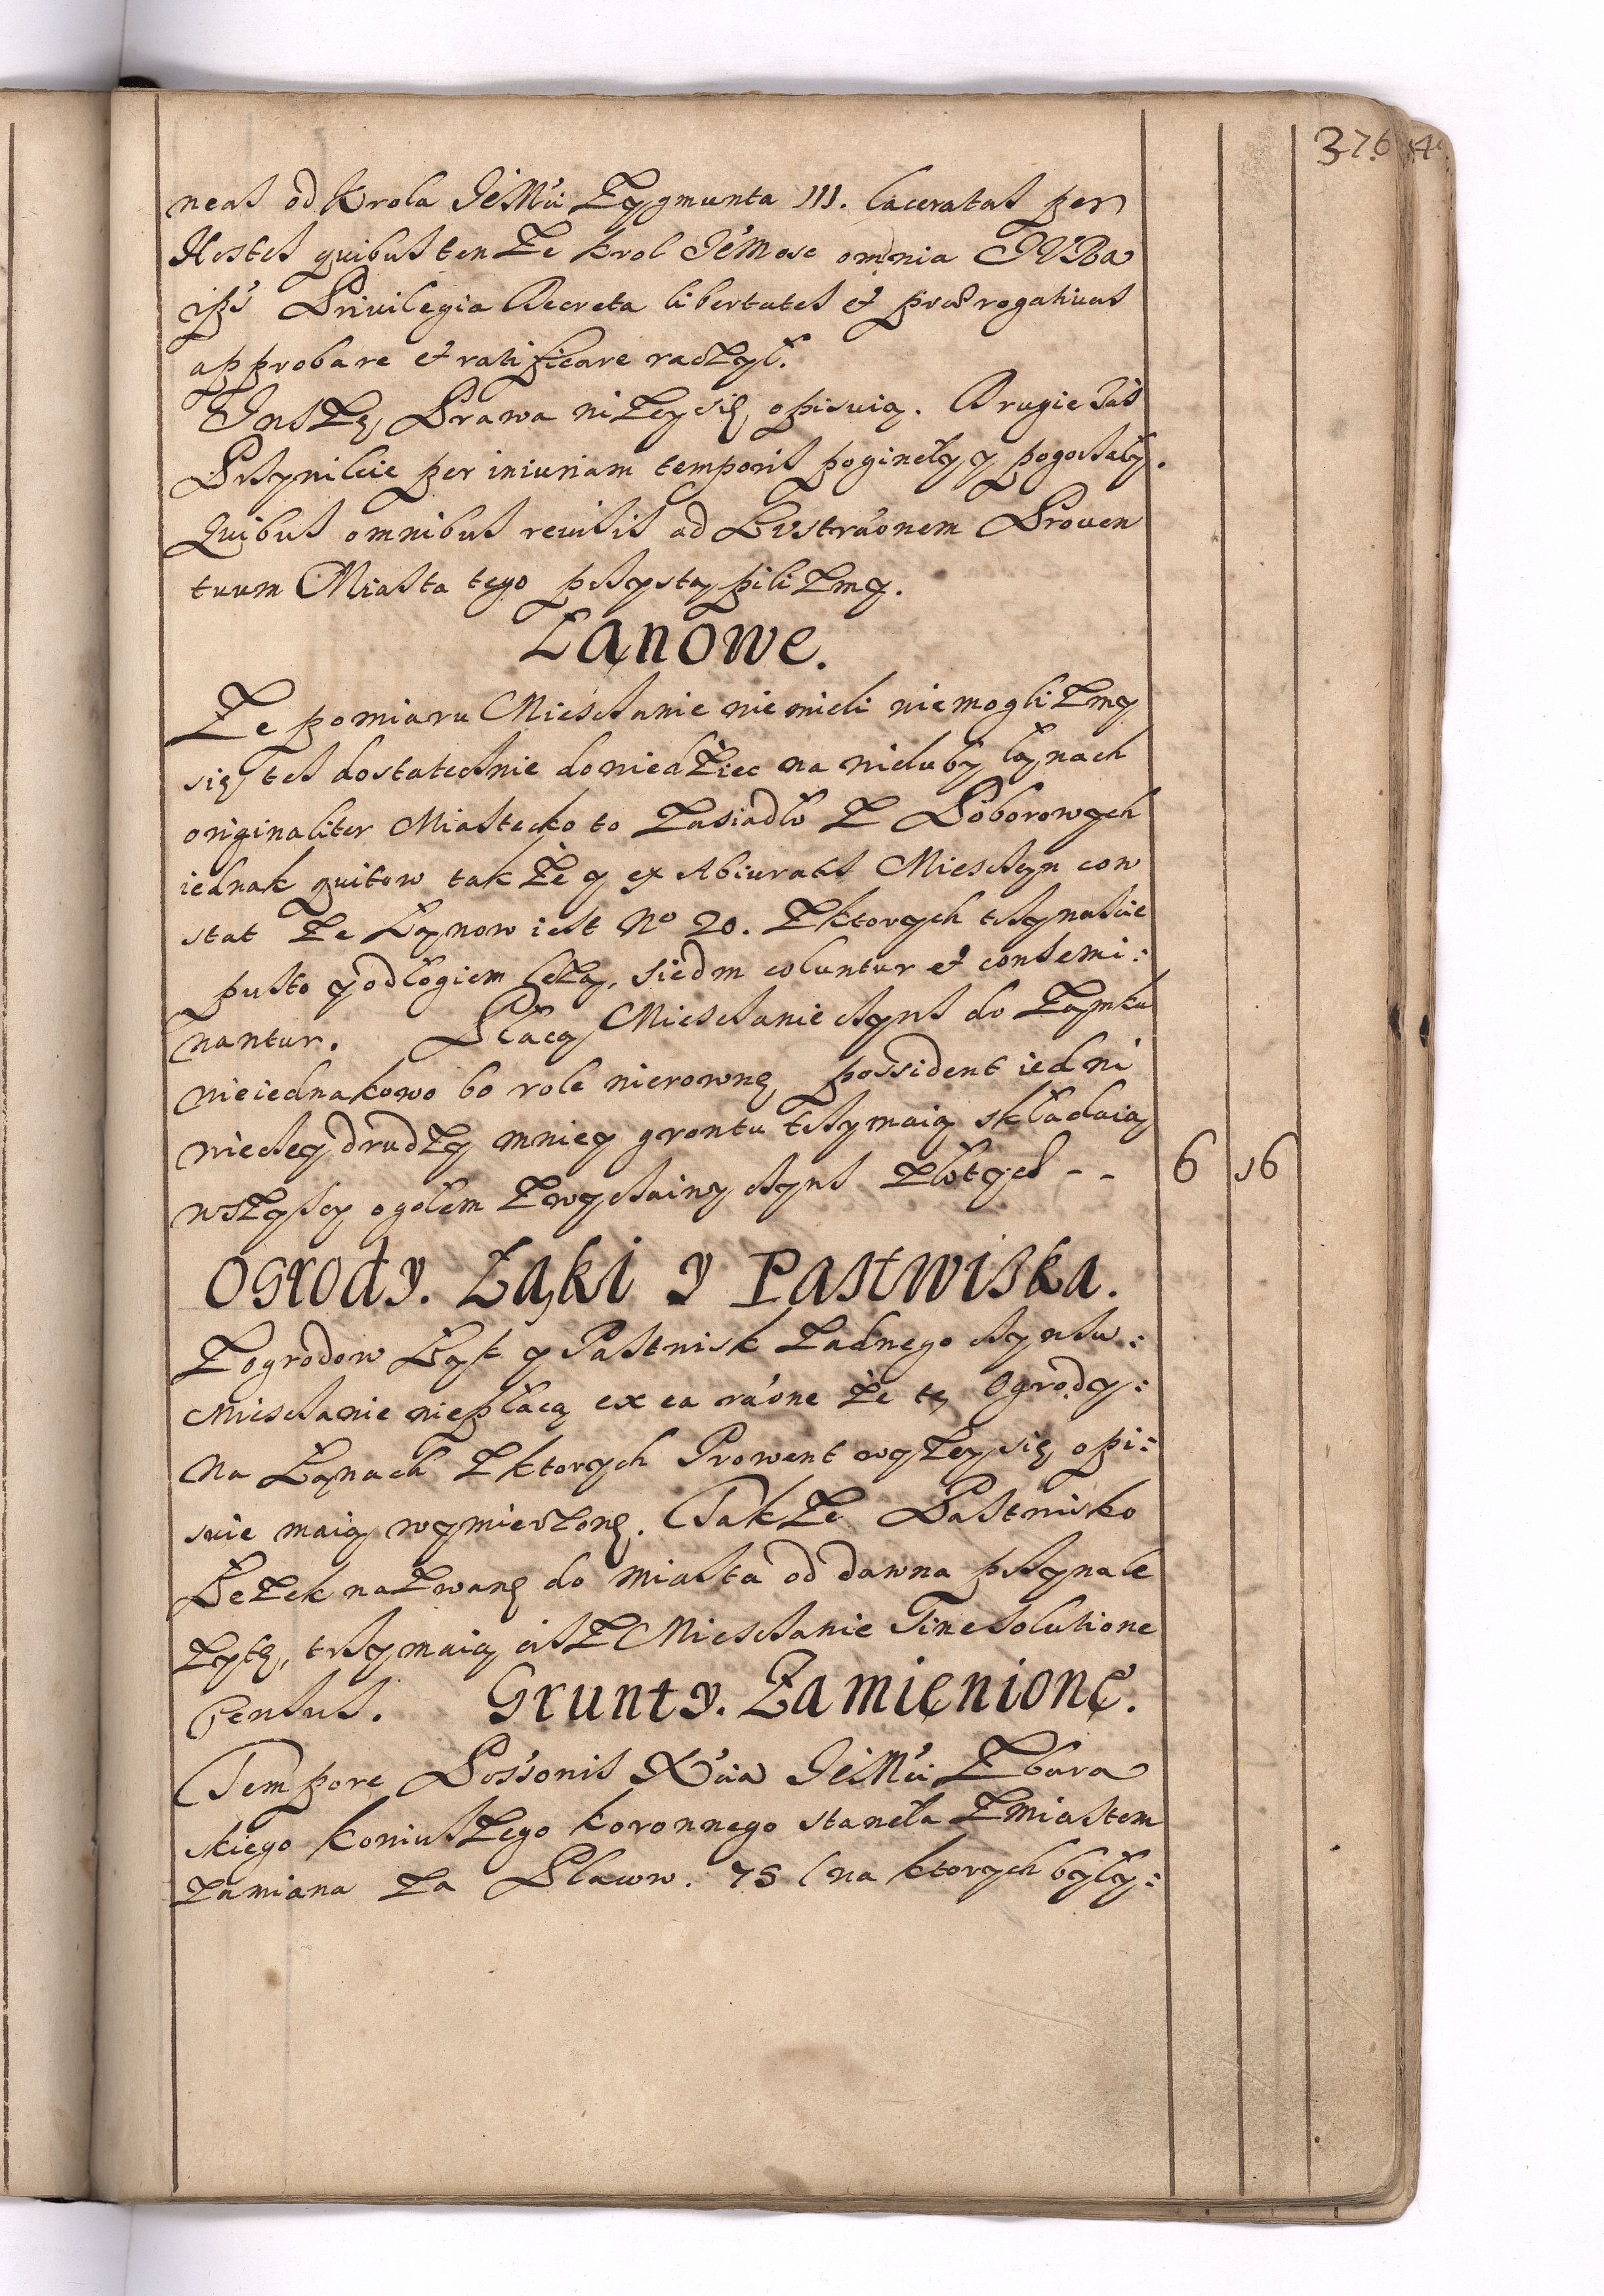 376
neas od Krola JeMci Zygmunta III. laceratas per
Hostes quibus ten Ze Krol JeMosc omnia IVRa
ips Priuilegia Decreta libertates et prærogatiuas
approbare et ratificare raczył.
Inszę Prawa niżey się opisuią. Drugie zas
Przywileie per iniuriam temporis poginęły y pogorzały.
Quibus omnibus reuisis ad Lustraonem Prouen
tuum Miasta tego przystąpiliżmy.
Łanowe.
Ze pomiaru Miesczanie nie mieli nie mogliżmy
się tes dostatecznie dowiedżiec na wielu by łanach
originaliter Miastecko to zasiadło z Poborowych
iednak quitow tak że y ex Abiuratis Miesczyn con
stat że Łanow iest No 20. z ktorych trzynascie
pusto y odłogiem lezą, siedm coluntur et consemi:
nantur. Płacą Miesczanie czyns do Zamku
nieiednakowo bo role nierownę possident iedni
wiecey drudzy mniey grontu trzymaią składaią
wszyscy ogołem zwyczainy czyns złotych - - 6 16
Ogrody. Łąki y Pastwiska.
Z ogrodow Łąk y Pastwisk żadnego czynszu:
Miesczanie niepłacą ex ea raone że tę Ogrody:
Na Łanach z ktorych Prowent wyżey się opi:
suie maią wymierzonę. Takze Pastwisko
Łężek nazwanę do miasta od dawna przynale
żytę, trzymaią ciż Miesczanie Sine solutione
Census. Grunty. Zamienionę.
Tempore Possonis Xcia JeMci Zbara
skiego koniuszego koronnego stanęła z miastem
zamiana za Placow. 75 (na ktorych były: